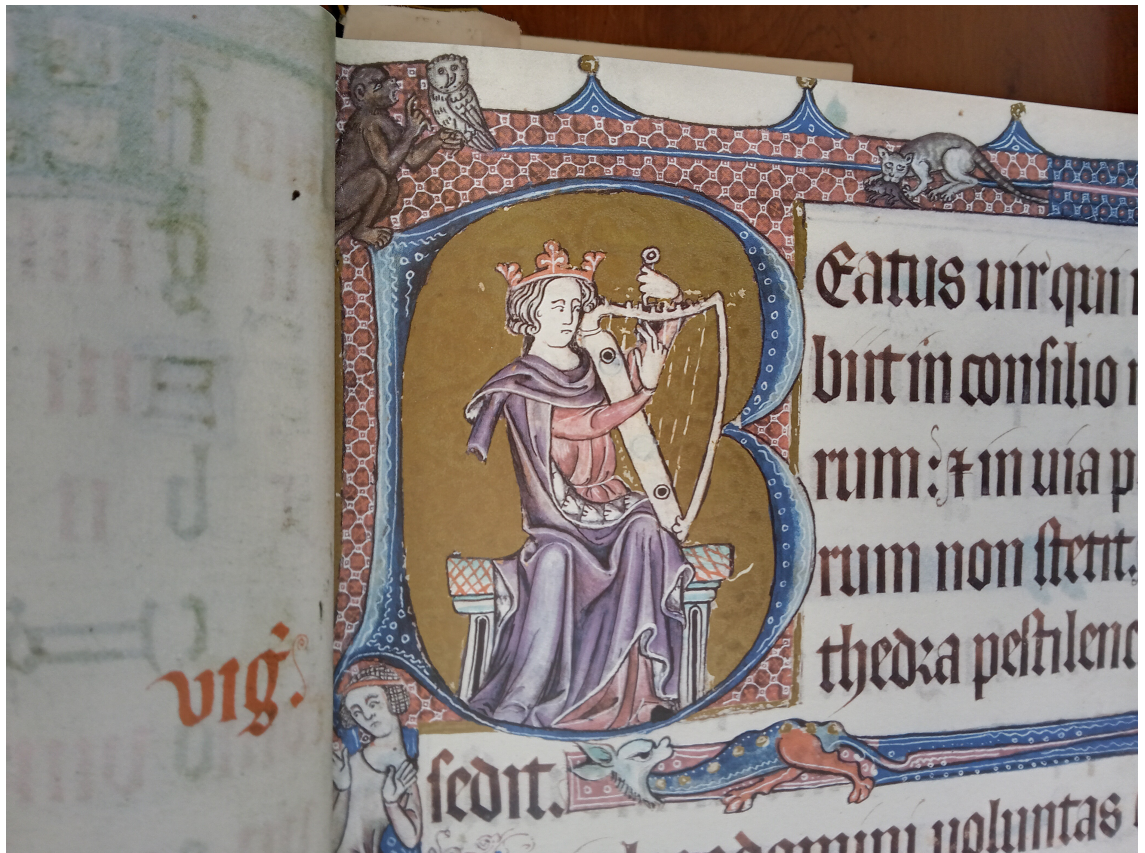 vig̃.
Beatus uir qui
biit in consilio
rum: ⁊ in uia p
rum non stetit.
thedra pestilenc
sedit.
domini uoluntas